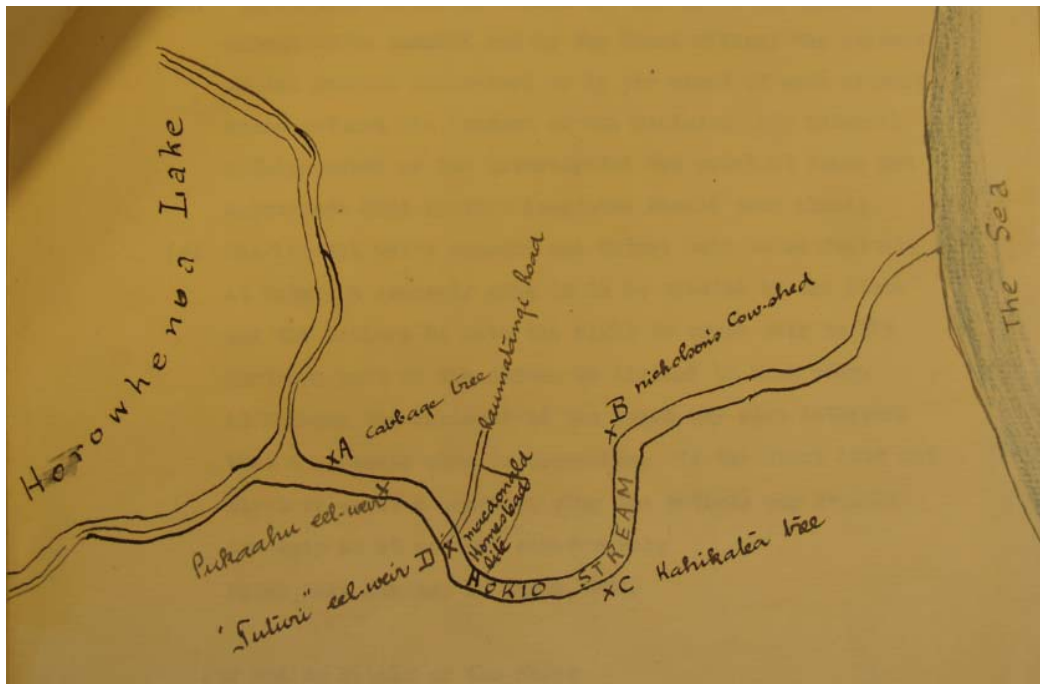 Horowhenua Lake
The Sea
Raumatangi Road
xB nicholson's Cow-shed
xA cabbage tree
macdonald
Homestead
Site
Pukaahu eel-weir x
"Tutiri" eel-weir D x
HOKIO STREAM
xC Kahikatea tree